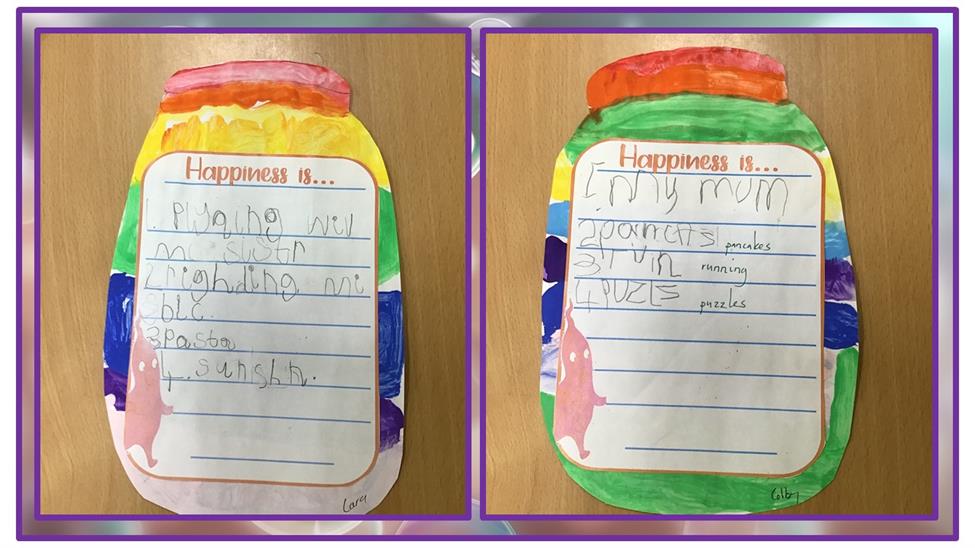 Happiness is...
1. Plyqing wil
mi sistr
2 righding mi
blc.
3 Pasta
4. sunshn.
Cara
Happiness is...
1 my mum
2 panctts pancakes
3 r vin running
4 PUZLS puzzles
Colby